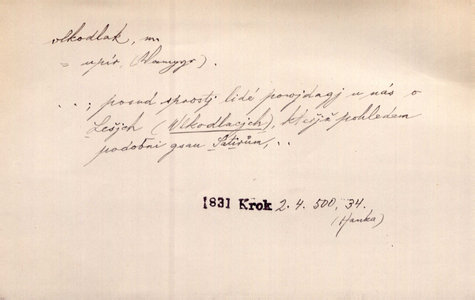 vlkodlak, m.
= upír, (Vampyr).
..; posud sprostj lidé powjdagj u nás o
Lešjch (Wlkodlacých), kteřjž pohledem
podobni gsau Satirům,..
1831 Krok 2. 4. 500, 34.
(Hanka)